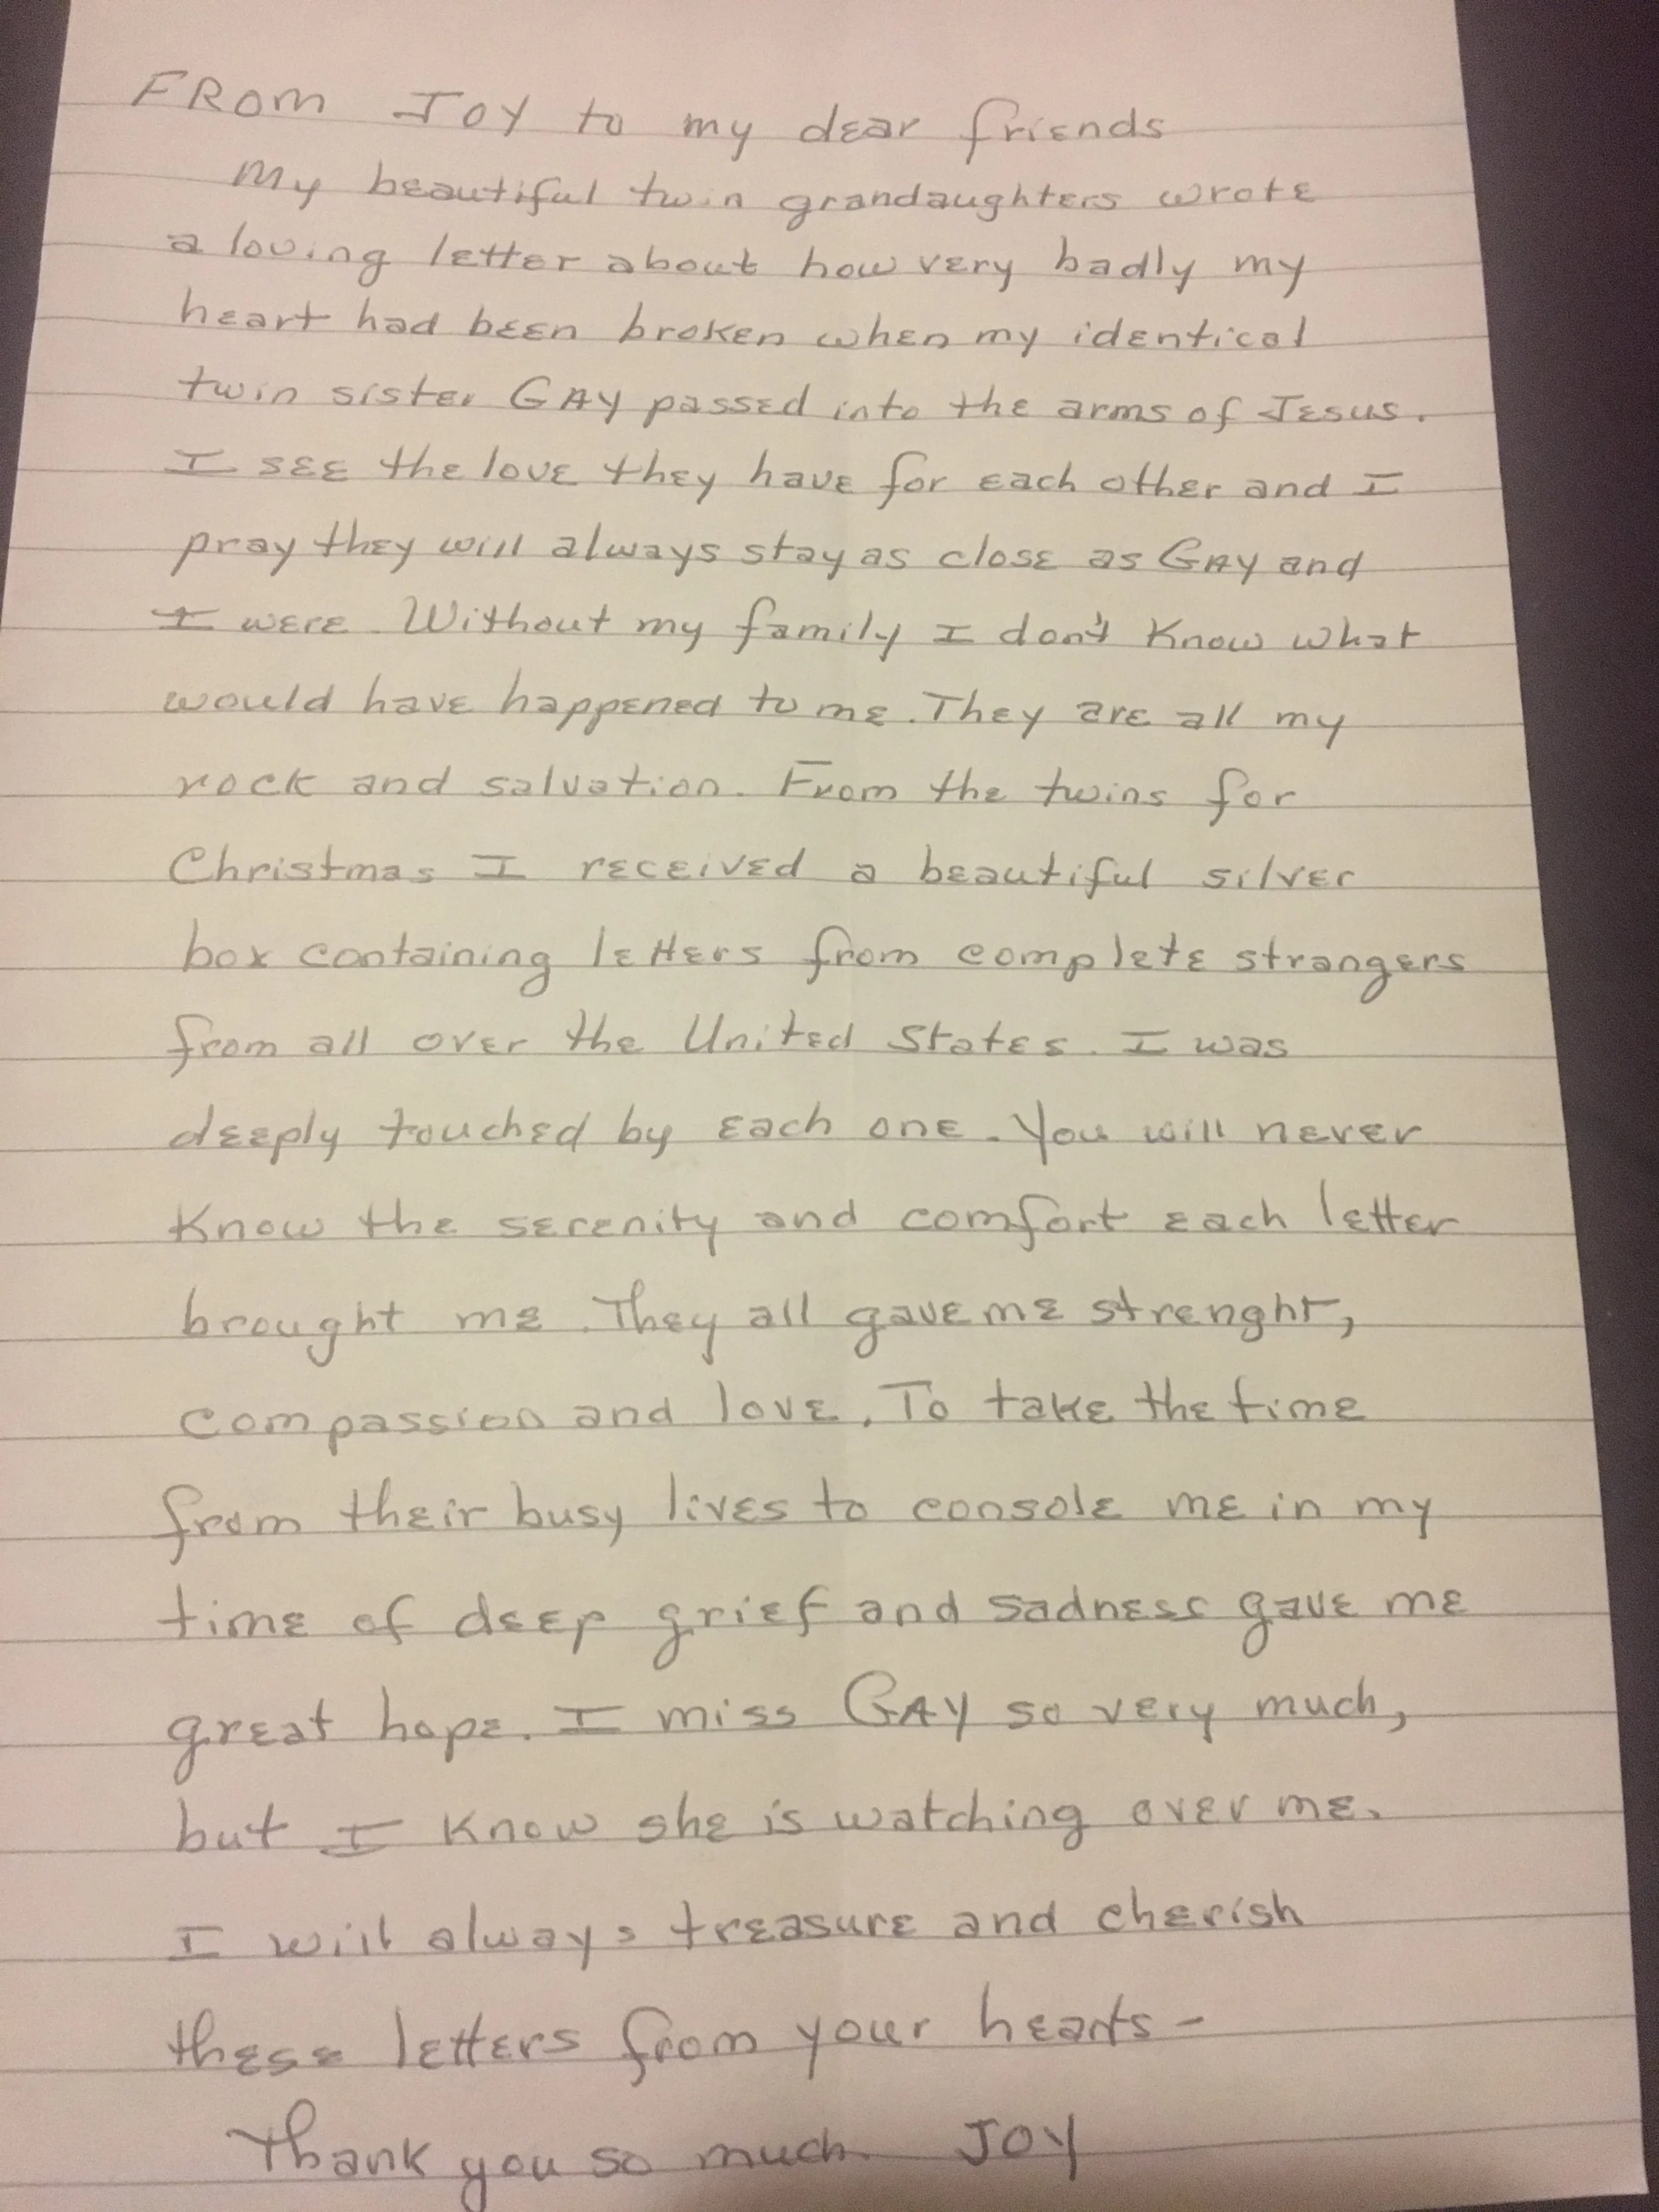 FROM JOY to my dear friends
My beautiful twin grandaughters wrote
a loving letter about how very badly my
heart had been broken when my identical
twin sister GAY passed into the arms of Jesus.
I see the love they have for each other and I
pray they will always stay as close as GAY and
I were. Without my family I don't know what
would have happened to me. They are all my
rock and salvation. From the twins for
Christmas I received a beautiful silver
box containing letters from complete strangers
from all over the United States. I was
deeply touched by each one. You will never
know the serenity and comfort each letter
brought me. They all gave me strenght,
compassion and love. To take the time
from their busy lives to console me in my
time of deep grief and sadness gave me
great hope. I miss GAY so very much,
but I know she is watching over me.
I will always treasure and cherish
these letters from your hearts -
Thank you so much. JOY